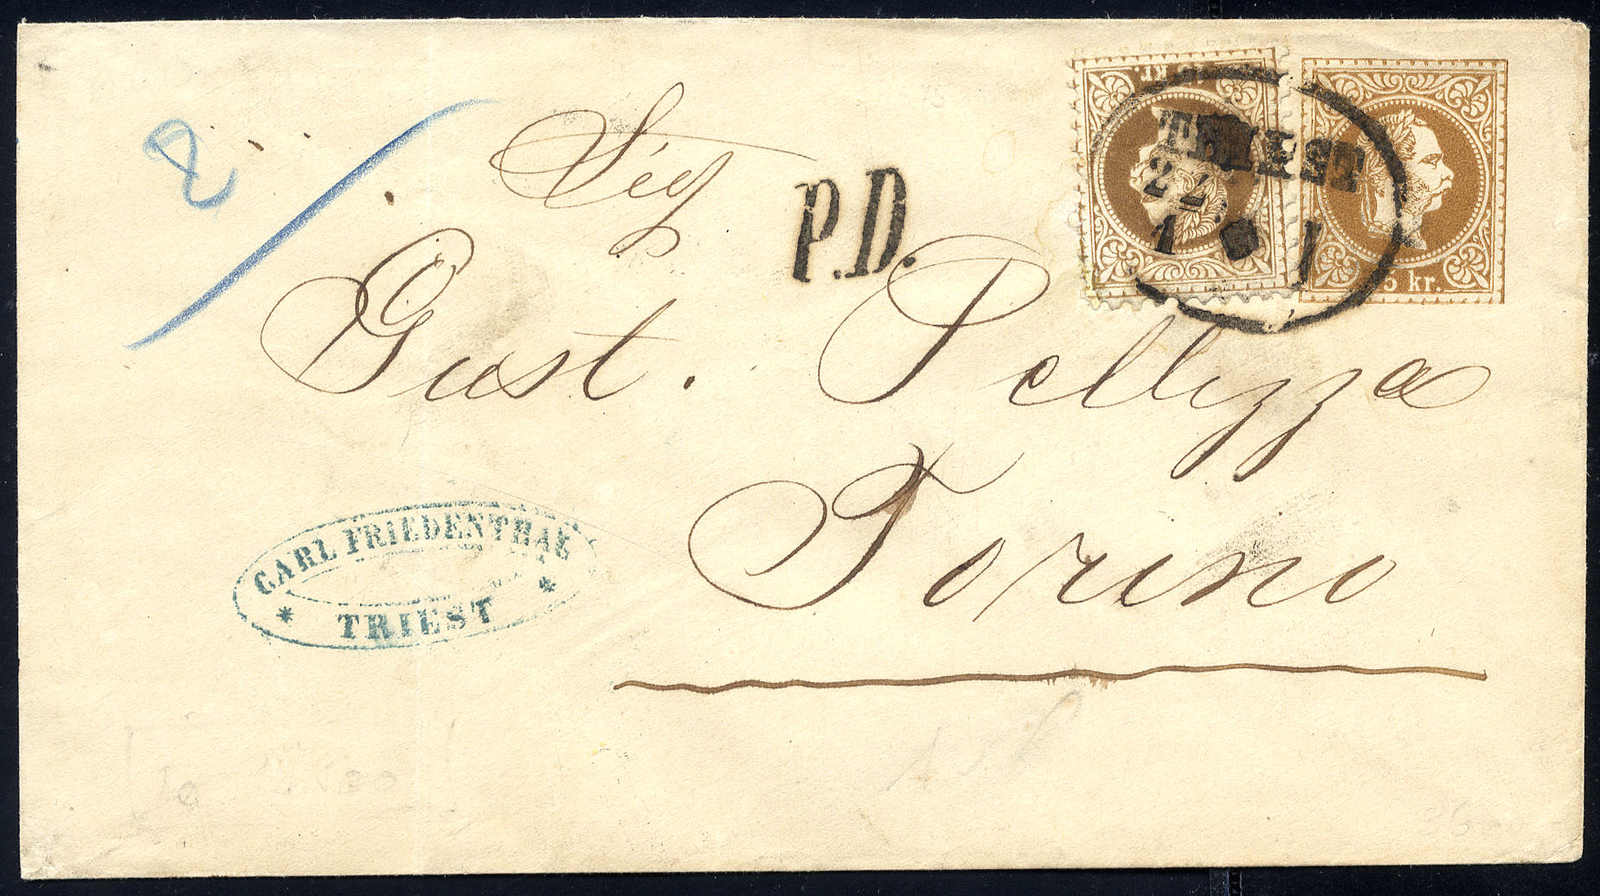 2
Sig
P.D.
TRIEST
22
1 1
5 kr.
kr.
Gust. Pellizza
Torino
CARL FRIEDENTHAL
TRIEST